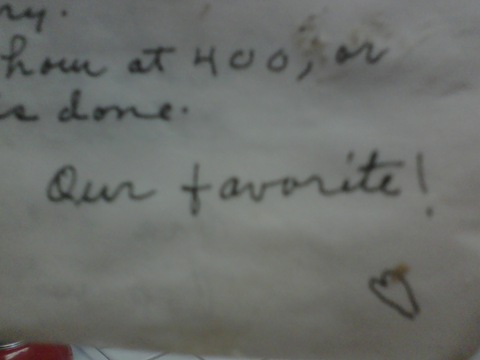 ry.
hour at 400, or
is done.
Our favorite!